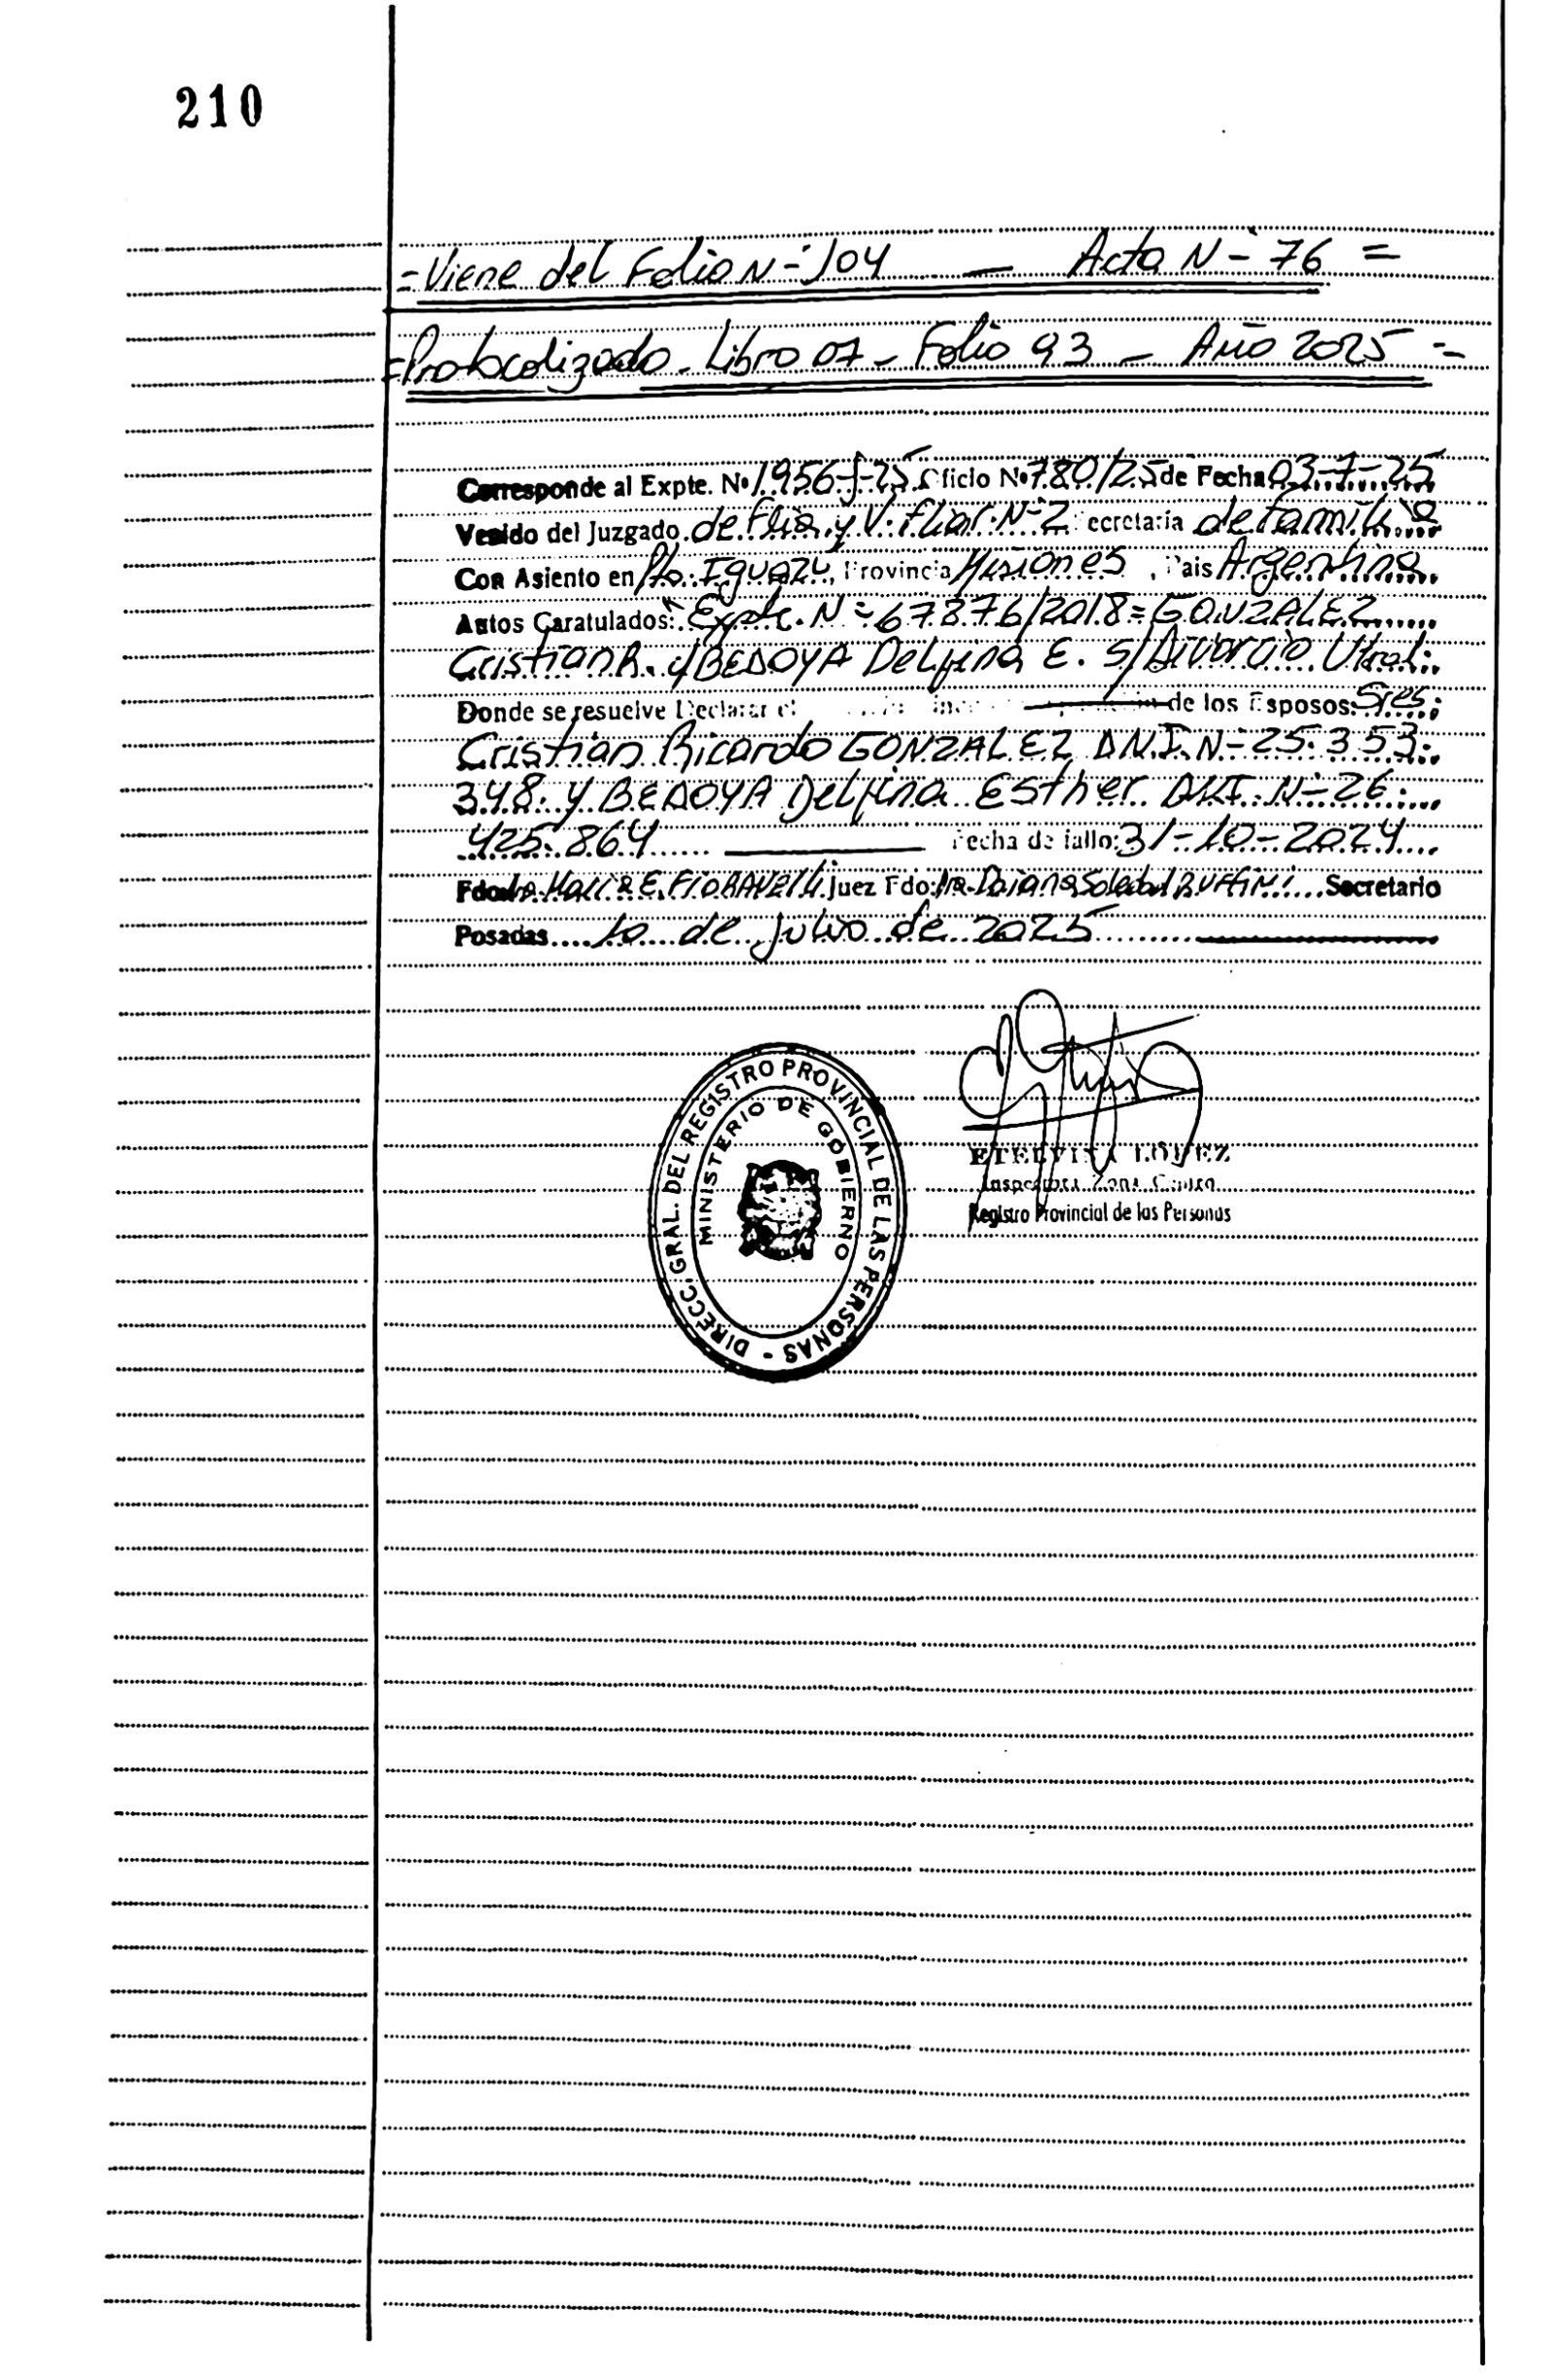 210
=Viene del Folio N-º 104 — Acta N-º 76 =
=Protocolizado - Libro 07 - Folio 93 - Año 2025 =
Corresponde al Expte. Nº 1956-J-25 Oficio Nº 780/25 de Fecha 03-7-25
Venido del Juzgado de Flia. y V. Fliar. N-º 2 Secretaría de Familia
Con Asiento en Pto. Iguazú, Provincia Misiones, Pais Argentina.
Autos Caratulados: "Expte. N-º 67876/2018 = GONZALEZ
Cristian R. c/ BEDOYA Delfina E. s/ Divorcio
Donde se resuelve Declarar el de los Esposos: Sres.
Cristian Ricardo GONZALEZ D.N.I. N-º 25.353.
348. y BEDOYA Delfina Esther DNI. N-º 26.
425.864 Fecha de fallo: 31-10-2024
Fdo. Dra. María E. FIORAVELLI Juez Fdo: Dra. Daiana Soledad RUFFINI Secretario
Posadas 10 de Julio de 2025
DIRECC. GRAL. DEL REGISTRO PROVINCIAL DE LAS PERSONAS -
MINISTERIO DE GOBIERNO
ETELVINA LOPEZ
Inspectora Zona Centro
Registro Provincial de las Personas